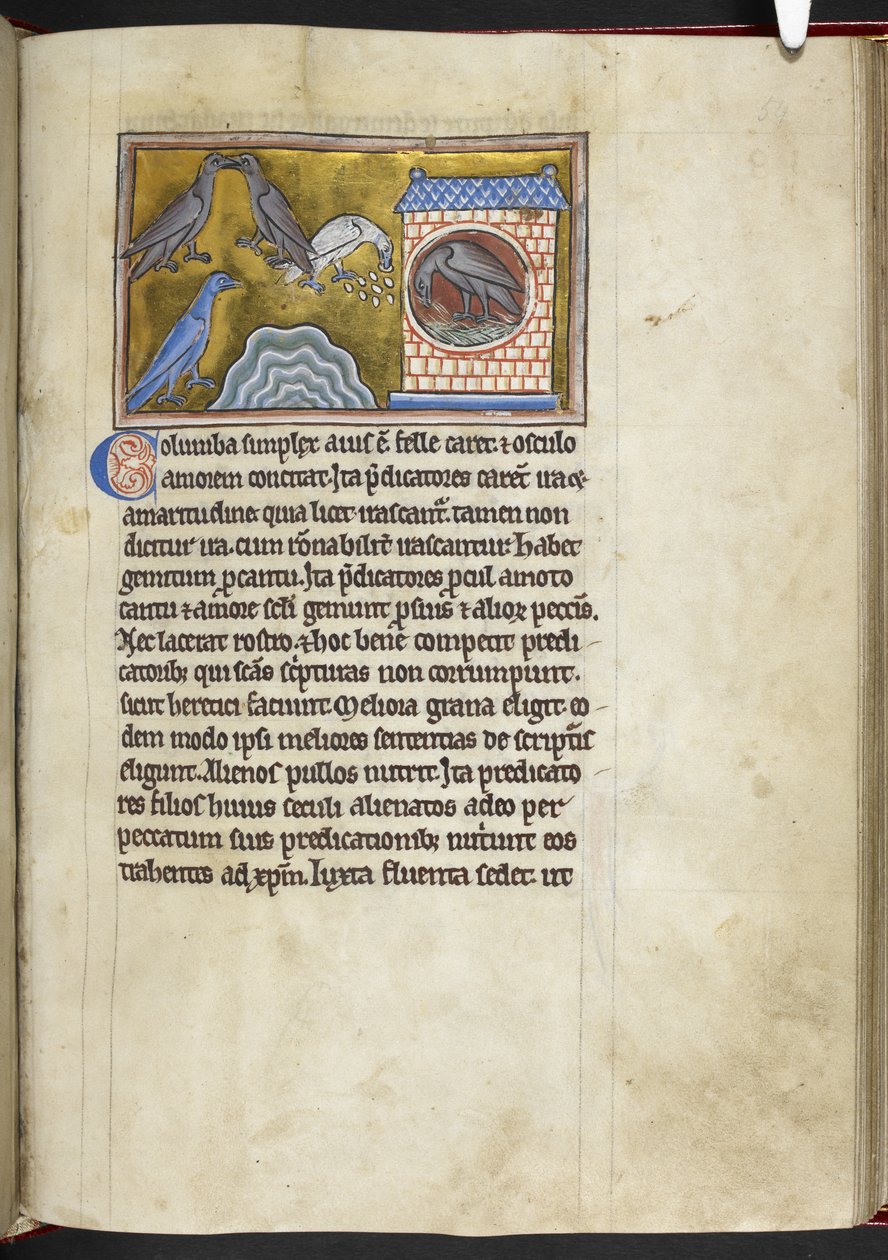 54
Columba simplex auis ē. felle caret. ⁊ osculo
amorem concitat. Ita p̄dicatores carēt ira ⁊
amaritudine quia licet irascant᷑. tamen non
dicitur ira. cum rōnabilit̄ irascantur. Habet
gemitum ꝓ cantu. Ita p̄dicatores procul amoto
cantu ⁊ amore sc̄li gemunt ꝓ suis ⁊ alioꝝ pecc̄is.
Nec lacerat rostro. ⁊ hoc bene competit predi-
catorib; qui sc̄as sc̀pturas non corrumpunt.
sicut heretici faciunt. Meliora grana eligit. eo-
dem modo ipsi meliores sententias de script᷑is
eligunt. Alienos pullos nutrit. Ita predicato-
res filios huius seculi alienatos a deo per
peccatum suis predicationib; nut̀unt eos
trahentes ad xp̄m. Iuxta fluenta sedet. ut